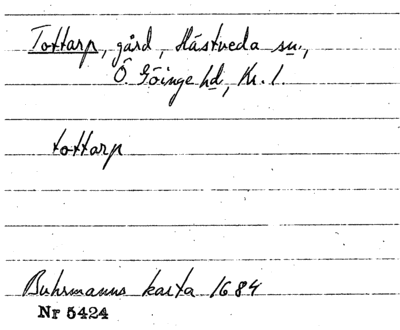 Tottarp, gård, Hästveda sn.,
Ö. Göinge hd, Kr. l.
tottarp
Buhrmanns karta 1684
Nr 5424